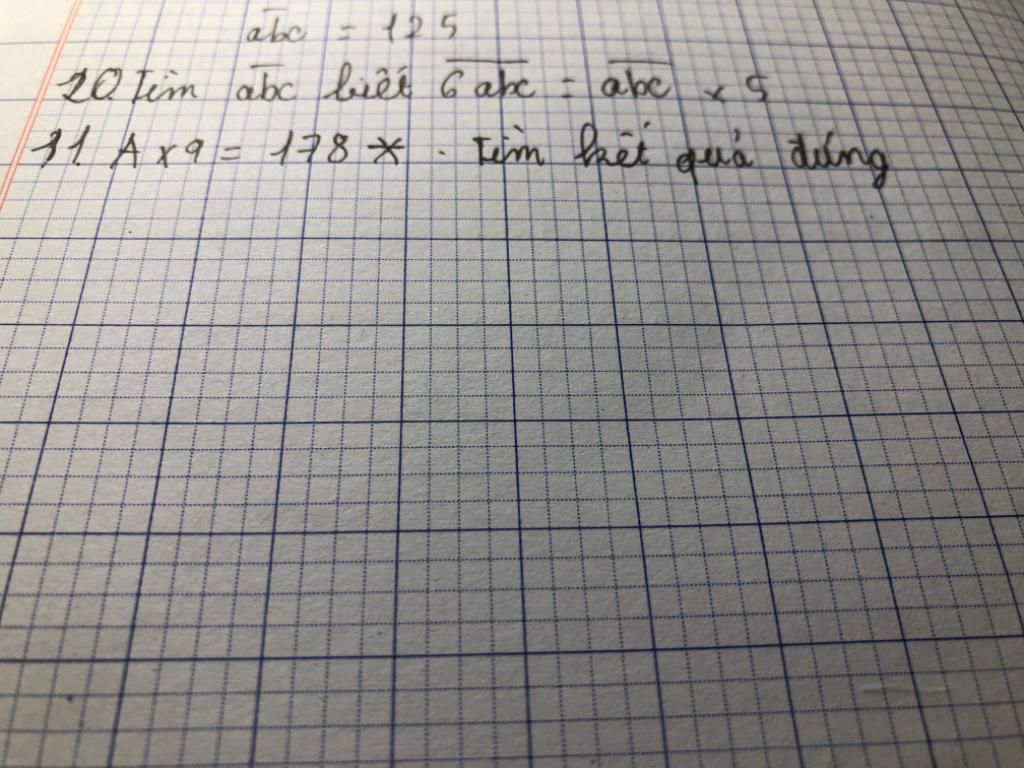 abc = 125
10 Tìm abc biết 6abc = abc x 5
11. A x 9 = 178 * . Tìm kết quả đúng